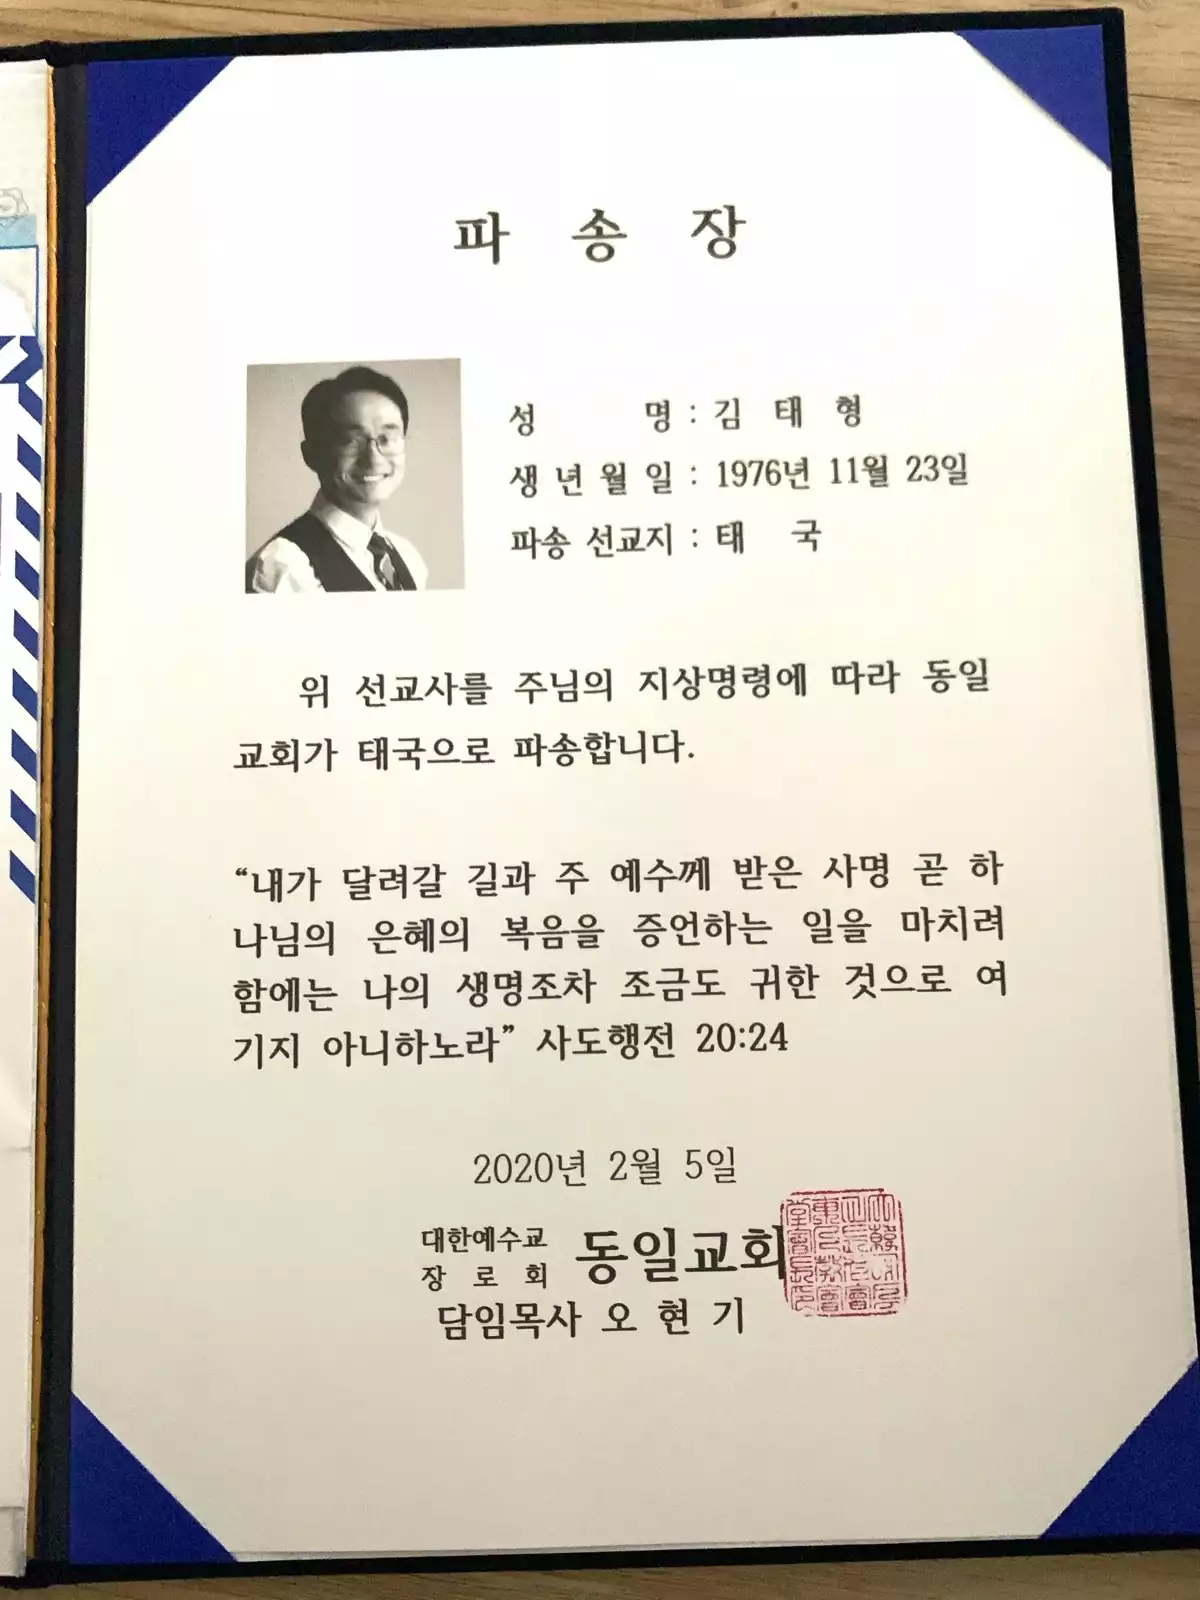 파 송 장
성 명 : 김 태 형
생 년 월 일 : 1976년 11월 23일
파송 선교지 : 태 국
위 선교사를 주님의 지상명령에 따라 동일
교회가 태국으로 파송합니다.
“내가 달려갈 길과 주 예수께 받은 사명 곧 하
나님의 은혜의 복음을 증언하는 일을 마치려
함에는 나의 생명조차 조금도 귀한 것으로 여
기지 아니하노라” 사도행전 20:24
2020년 2월 5일
대한예수교
장 로 회 동일교회
담임목사 오 현 기